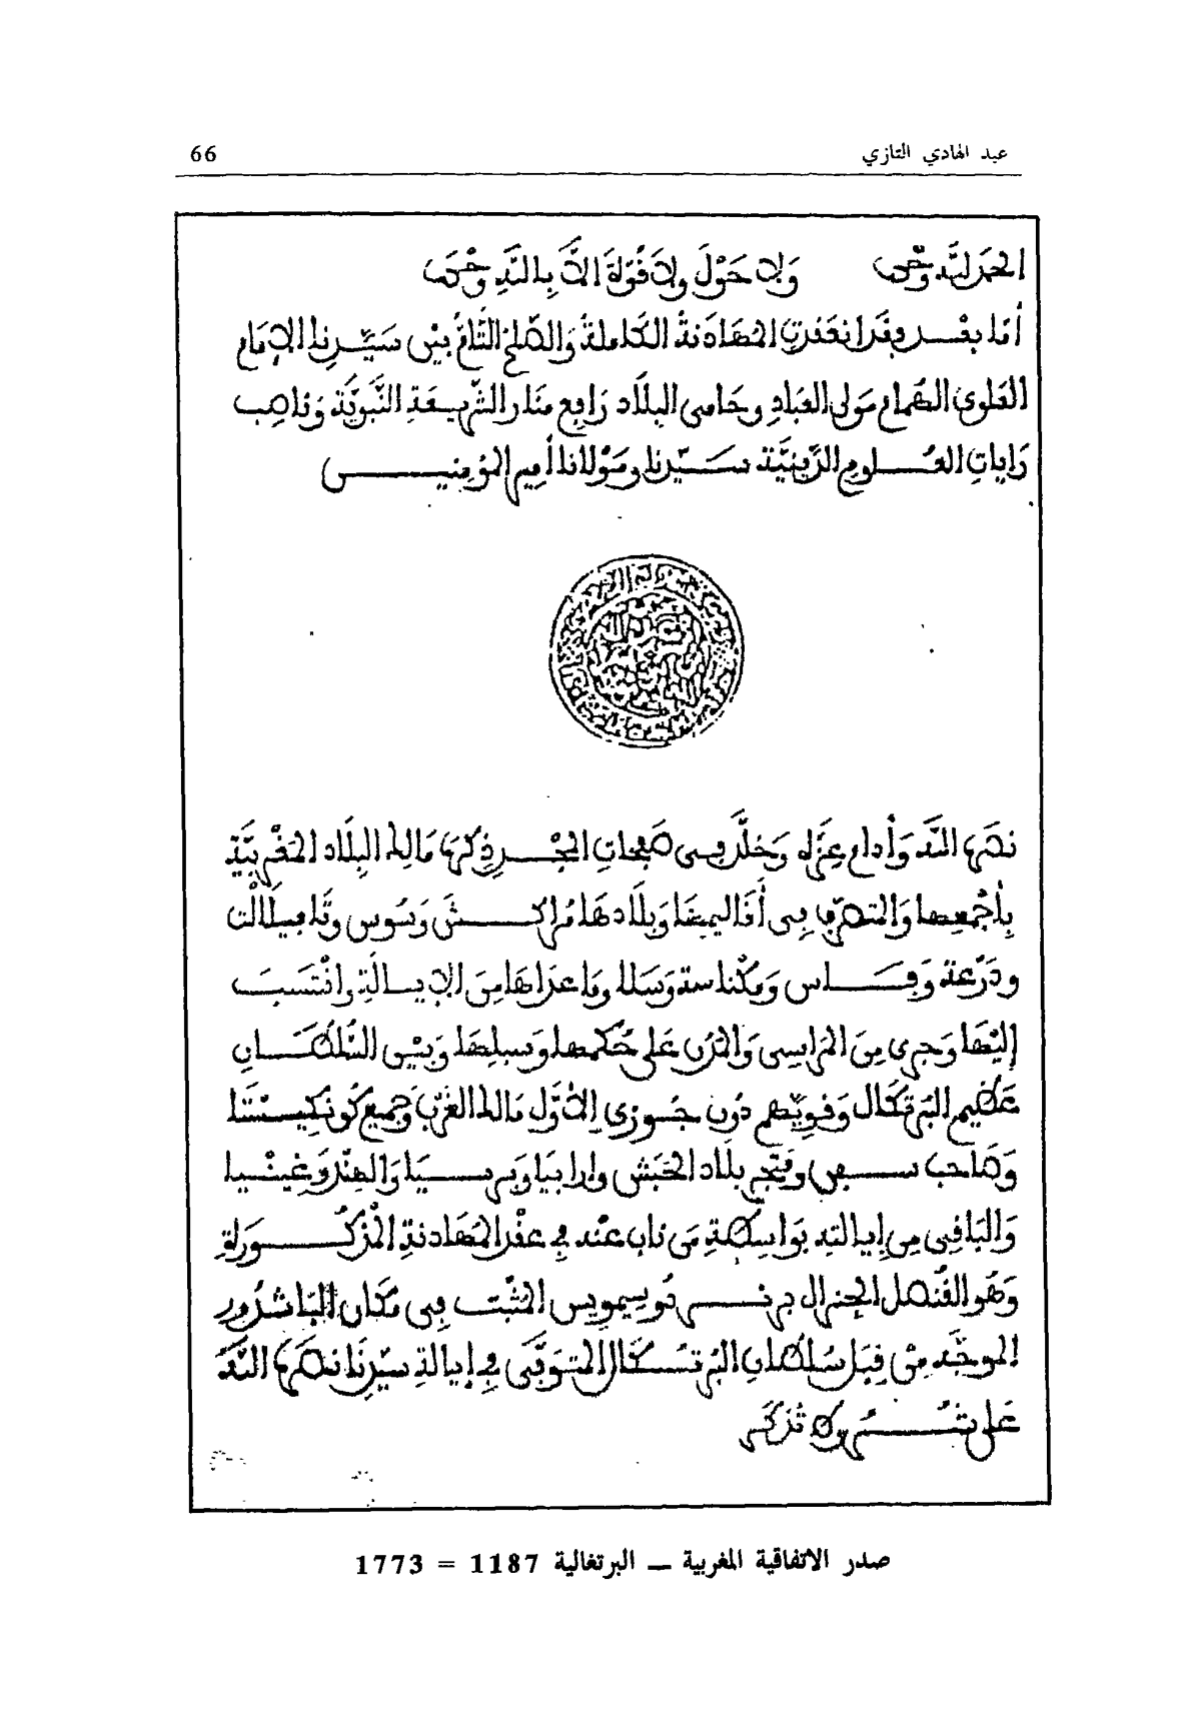 عبد الهادي التازي
66
الحمد لله وحده ولا حول ولا قوة الا بالله وحده
أما بعد فقد انعقدت المهادنة الكاملة والصلح التام بين سيدنا الإمام
العلوي الهمام مولى العباد وحامي البلاد رافع منار الشريعة النبوية وناصب
رايات العلوم الدينية سيدنا ومولانا أمير المؤمنين
نصره الله وأدام عزه وخلد في صفحات المجد ذكره مالك البلاد المغربية
بأجمعها والتصرف في أقاليمها وبلادها مراكش وسوس وتافيلالت
ودرعة وفاس ومكناسة وسلا وما عداها من الإيالة وانتسب
إليها وجرى من المراسي والمدن على حكمها وسبلها وبين السلطان
عظيم البرتكال وقويهم دون جوزي الأول مالك الغرب وجميع كونكيستنا
وصاحب سبر وفتح بلاد الحبش وارابيا وبرسيا والهند وغينيا
والباقي من إيالته بواسطة من ناب عنه في عقد المهادنة المذكورة
وهو القنصل الجنرال برنردو سيمويس المثبت في مكان الباشدور
الموجه من قبل سلطان البرتكال المتوفى في إيالة سيدنا نصره الله
على شروط تذكر
صدر الاتفاقية المغربية ــ البرتغالية 1187 = 1773